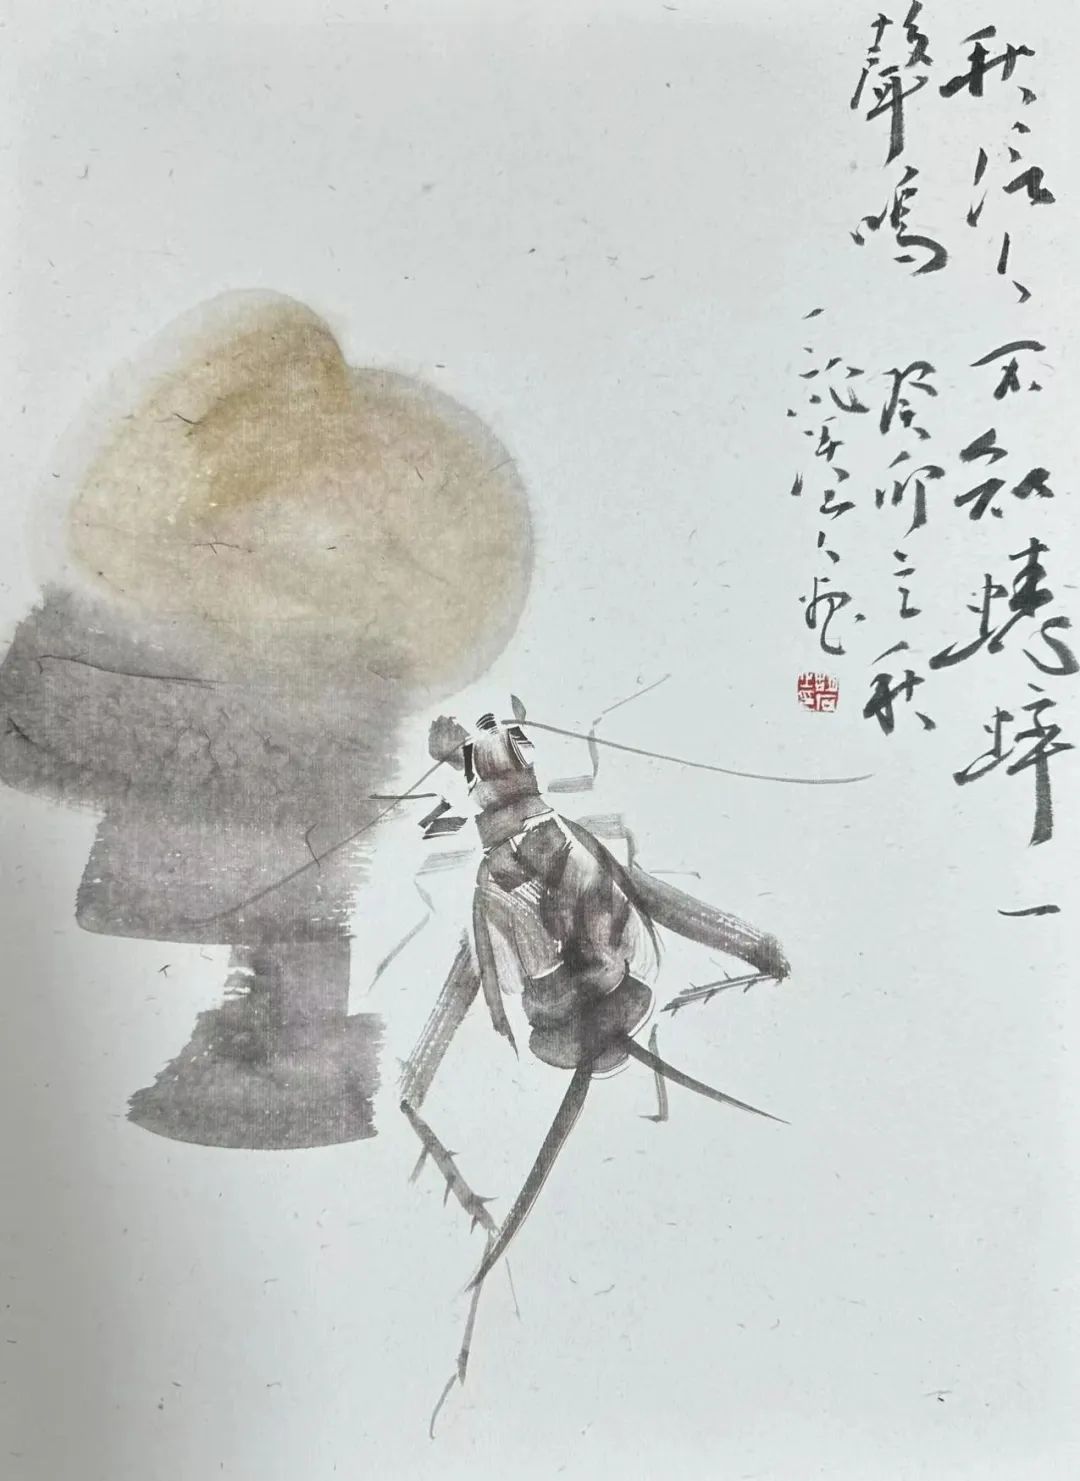 秋信人不知蟋蟀一
聲鳴
癸卯之秋